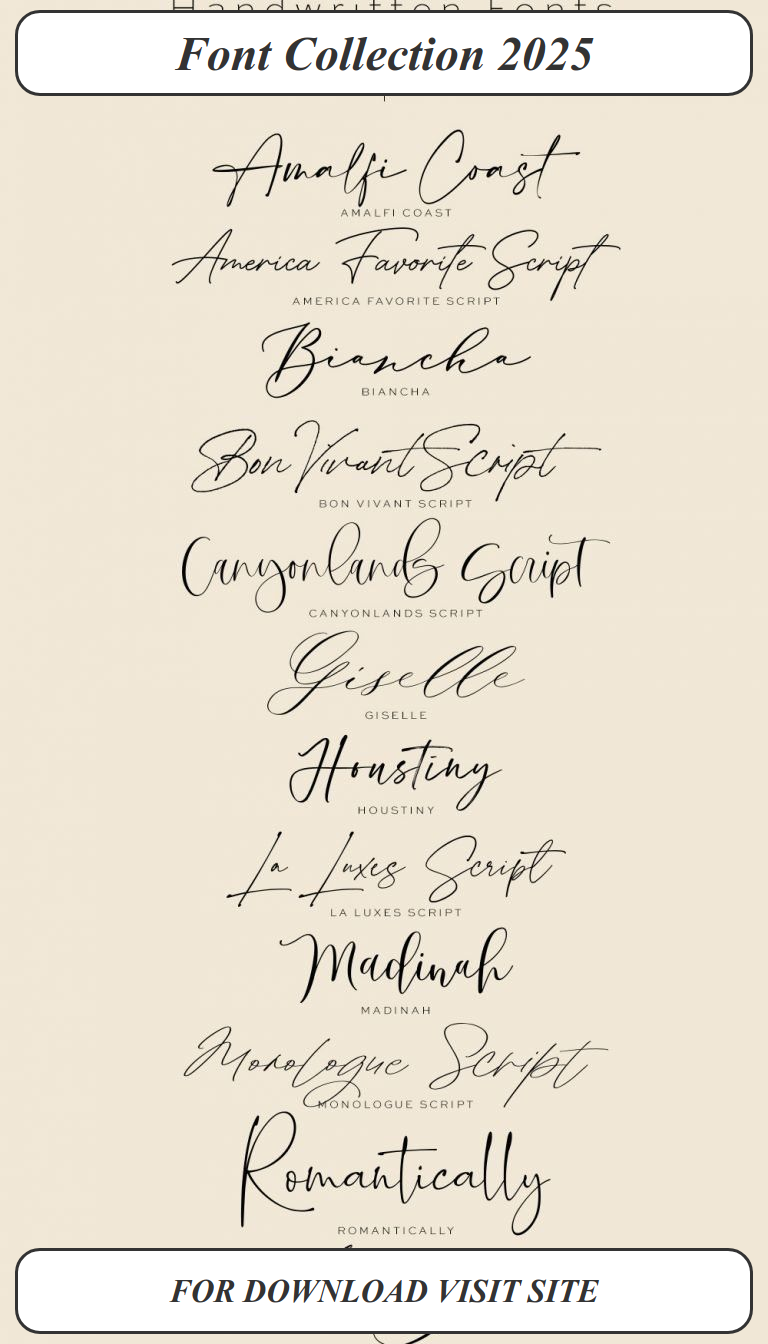 Handwritten Fonts
Font Collection 2025
Amalfi Coast
AMALFI COAST
America Favorite Script
AMERICA FAVORITE SCRIPT
Biancha
BIANCHA
Bon Vivant Script
BON VIVANT SCRIPT
Canyonlands Script
CANYONLANDS SCRIPT
Giselle
GISELLE
Houstiny
HOUSTINY
La Luxes Script
LA LUXES SCRIPT
Madinah
MADINAH
Monologue Script
MONOLOGUE SCRIPT
Romantically
ROMANTICALLY
FOR DOWNLOAD VISIT SITE